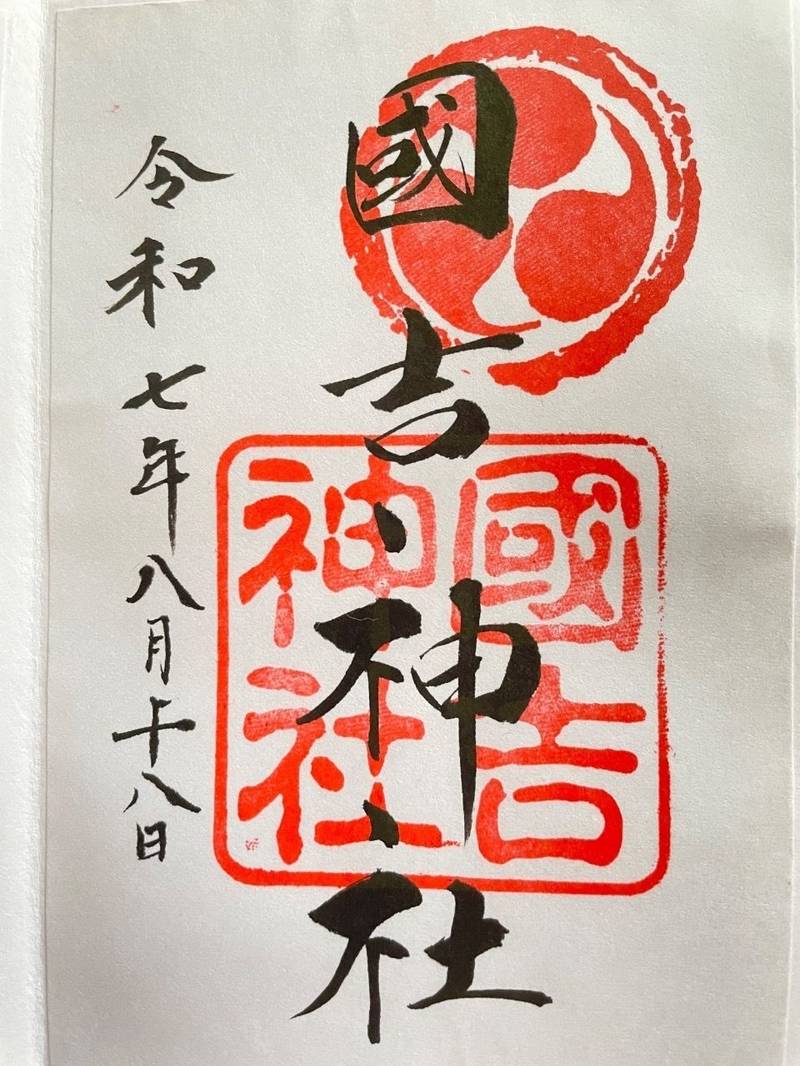 國吉神社
國吉
神社
令和七年八月十八日